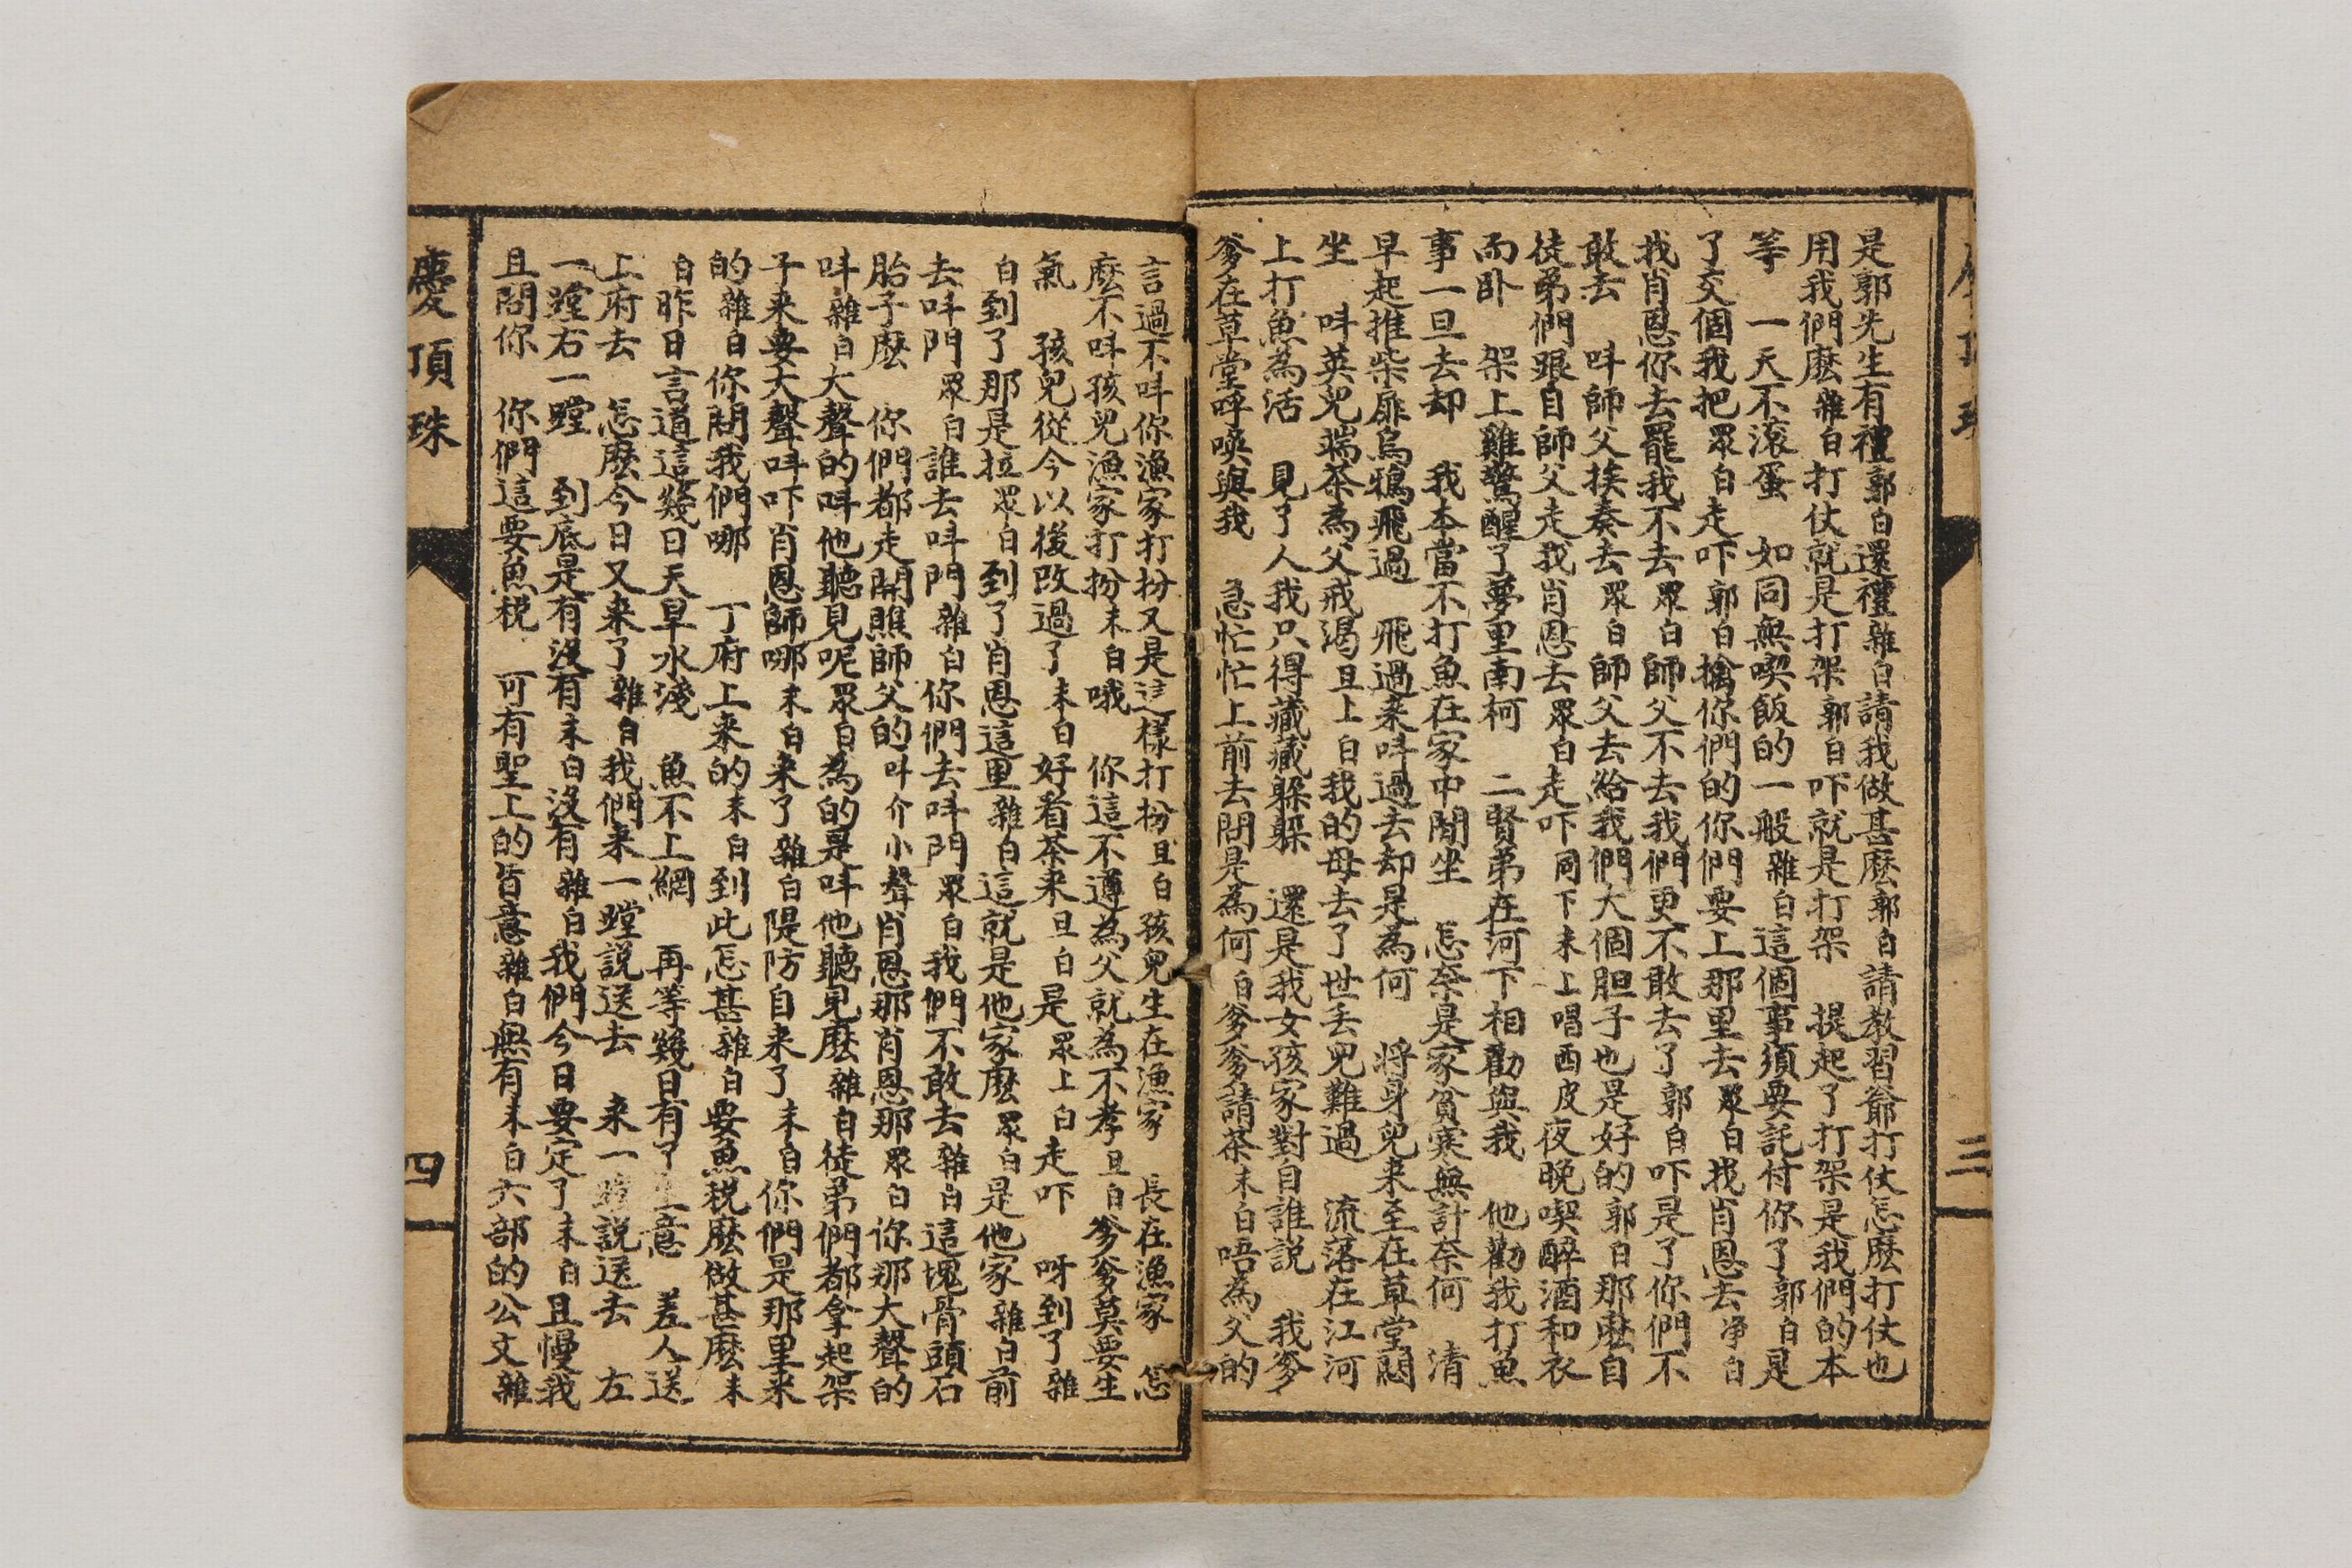 三
是郭先生有禮郭白還禮雜白請我做甚麽郭白請教習爺打仗怎麽打仗也
用我們麽雜白打仗就是打架郭白吓就是打架 提起了打架是我們的本
等 一天不滚蛋 如同無喫飯的一般雜白這個事須要託付你了郭白是
了交個我把眾白走吓郭白擒你們的你們要上那里去眾白找肖恩去净白
找肖恩你去罷我不去眾白師父不去我們更不敢去了郭白吓是了你們不
敢去 呌師父挨奏去眾白師父去給我們大個胆子也是好的郭白那麽自
徒弟們跟自師父走我肖恩去眾白走吓同下末上唱西皮夜晚喫醉酒和衣
而卧 架上雞驚醒了夢里南柯 二賢弟在河下相勸與我 他勸我打魚
事一旦去却 我本當不打魚在家中閒坐 怎奈是家貧寒無計奈何 清
早起推柴扉烏鴉飛過 飛過来呌過去却是為何 將身兒来至在草堂悶
坐 呌英兒端茶為父戒渴旦上白我的母去了世丢兒難過 流落在江河
上打魚為活 見了人我只得藏藏躲躲 還是我女孩家對自誰說 我爹
爹在草堂呼喚與我 急忙忙上前去問是為何白爹爹請茶末白唔為父的
言過不呌你漁家打扮又是這樣打扮旦白孩兒生在漁家 長在漁家 怎
麽不呌孩兒漁家打扮末白哦 你這不遵為父就為不孝旦白爹爹莫要生
氣 孩兒從今以後改過了末白好看茶来旦白是眾上白走吓 呀到了雜
白到了那是拉眾白到了肖恩這里雜白這就是他家麽眾白是他家雜白前
去呌門眾白誰去呌門雜白你們去呌門眾白我們不敢去雜白這塊骨頭石
胎子麽 你們都走開瞧師父的叫介小聲肖恩那肖恩那眾白你那大聲的
呌雜白大聲的呌他聽見呢眾白為的是呌他聽見麽雜白徒弟們都拿起架
子来要大聲呌吓肖恩師哪末白来了雜白隄防自来了末白你們是那里来
的雜白你問我們哪 丁府上来的末白到此怎甚雜白要魚税麽做甚麽末
白昨日言道這幾日天旱水淺 魚不上網 再等幾日有了生意 差人送
上府去 怎麽今日又来了雜白我們来一蹚說送去 来一蹚説送去 左
一蹚右一蹚 到底是有沒有末白沒有雜白我們今日要定了末白且慢我
且問你 你們這要魚税 可有聖上的旨意雜白無有末白六部的公文雜
慶頂珠
四